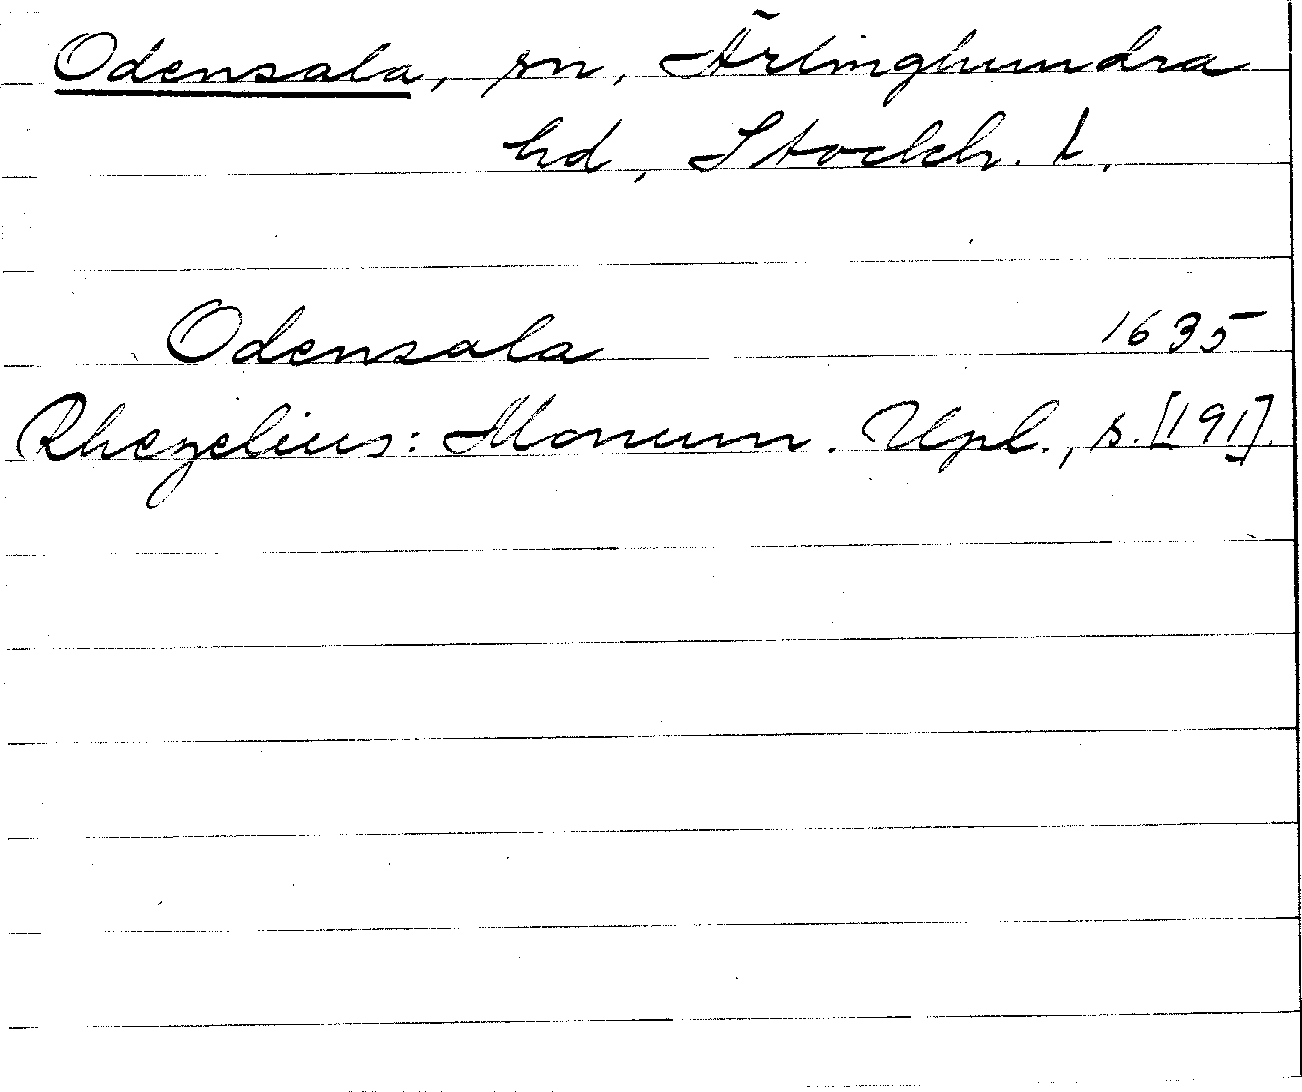 Odensala, sn, Ärlinghundra
hd, Stockh. l.
Odensala 1635
Rhezelius: Monum. Upl., s. [191].